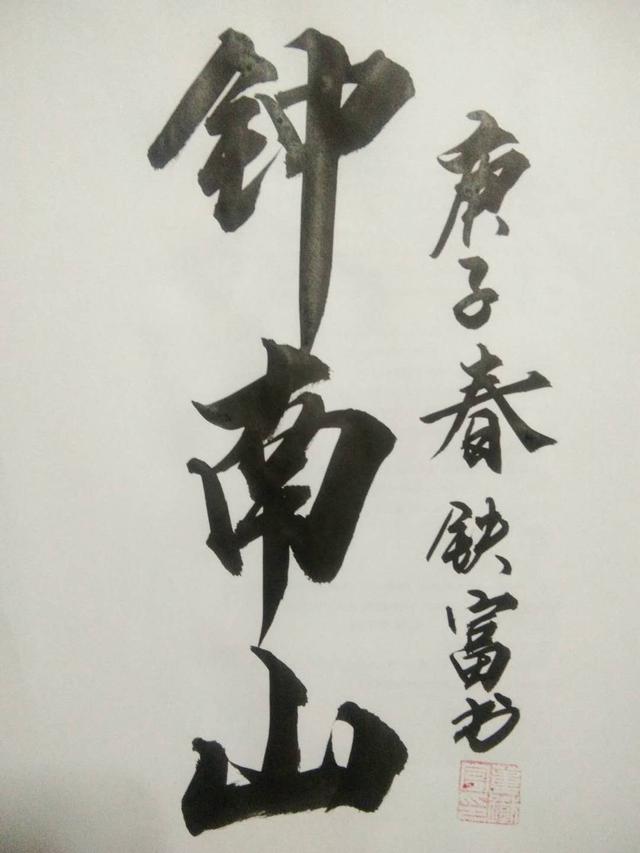 钟南山
庚子春 铁富书